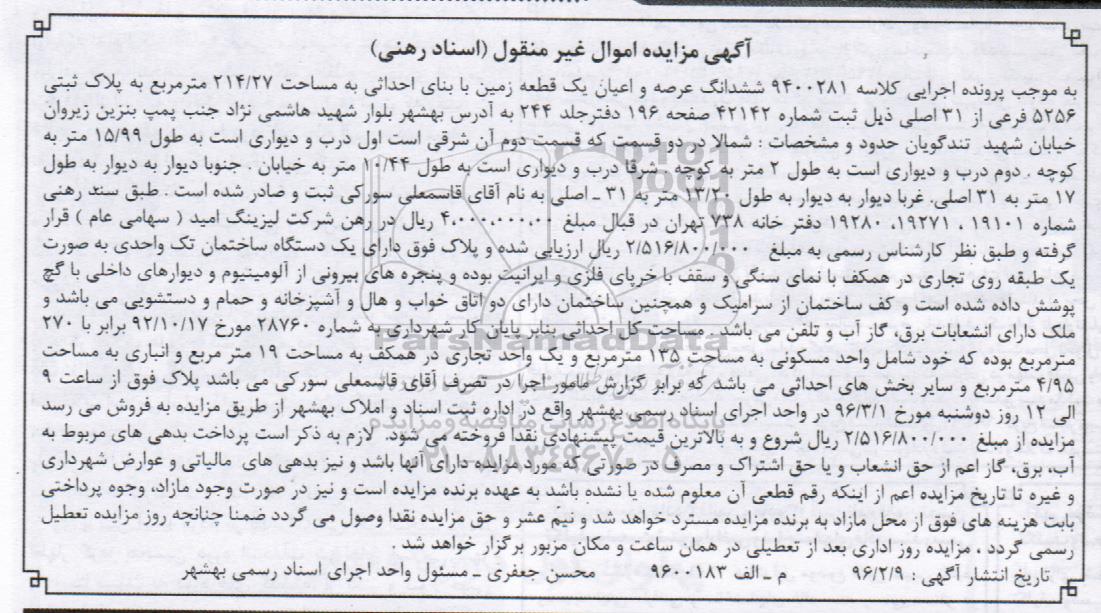 آگهی مزایده اموال غیر منقول (اسناد رهنی)
به موجب پرونده اجرایی کلاسه ۹۴۰۰۲۸۱ ششدانگ عرصه و اعیان یک قطعه زمین با بنای احداثی به مساحت ۲۱۴/۲۷ مترمربع به پلاک ثبتی
۵۲۵۶ فرعی از ۳۱ اصلی ذیل ثبت شماره ۴۲۱۴۲ صفحه ۱۹۶ دفترجلد ۲۴۴ به آدرس بهشهر بلوار شهید هاشمی نژاد جنب پمپ بنزین زیروان
خیابان شهید تندگویان حدود و مشخصات : شمالا در دو قسمت که قسمت دوم آن شرقی است اول درب و دیواری است به طول ۱۵/۹۹ متر به
کوچه . دوم درب و دیواری است به طول ۲ متر به کوچه . شرقا درب و دیواری است به طول ۱۰/۴۴ متر به خیابان . جنوبا دیوار به دیوار به طول
۱۷ متر به ۳۱ اصلی. غربا دیوار به دیوار به طول ۱۳/۲۰ متر به ۳۱ ـ اصلی به نام آقای قاسمعلی سورکی ثبت و صادر شده است . طبق سند رهنی
شماره ۱۹۱۰۱ ، ۱۹۲۷۱، ۱۹۲۸۰ دفتر خانه ۷۳۸ تهران در قبال مبلغ ۴،۰۰۰،۰۰۰،۰۰ ریال در رهن شرکت لیزینگ امید ( سهامی عام ) قرار
گرفته و طبق نظر کارشناس رسمی به مبلغ ۲/۵۱۶/۸۰۰/۰۰۰ ریال ارزیابی شده و پلاک فوق دارای یک دستگاه ساختمان تک واحدی به صورت
یک طبقه روی تجاری در همکف با نمای سنگی و سقف با خرپای فلزی و ایرانیت بوده و پنجره های بیرونی از آلومینیوم و دیوارهای داخلی با گچ
پوشش داده شده است و کف ساختمان از سرامیک و همچنین ساختمان دارای دو اتاق خواب و هال و آشپزخانه و حمام و دستشویی می باشد و
ملک دارای انشعابات برق، گاز آب و تلفن می باشد . مساحت کل احداثی بنابر پایان کار شهرداری به شماره ۲۸۷۶۰ مورخ ۹۲/۱۰/۱۷ برابر با ۲۷۰
مترمربع بوده که خود شامل واحد مسکونی به مساحت ۱۳۵ مترمربع و یک واحد تجاری در همکف به مساحت ۱۹ متر مربع و انباری به مساحت
۴/۹۵ مترمربع و سایر بخش های احداثی می باشد که برابر گزارش مامور اجرا در تصرف آقای قاسمعلی سورکی می باشد پلاک فوق از ساعت ۹
الی ۱۲ روز دوشنبه مورخ ۹۶/۳/۱ در واحد اجرای اسناد رسمی بهشهر واقع در اداره ثبت اسناد و املاک بهشهر از طریق مزایده به فروش می رسد
مزایده از مبلغ ۲/۵۱۶/۸۰۰/۰۰۰ ریال شروع و به بالاترین قیمت پیشنهادی نقدا فروخته می شود. لازم به ذکر است پرداخت بدهی های مربوط به
آب، برق، گاز اعم از حق انشعاب و یا حق اشتراک و مصرف در صورتی که مورد مزایده دارای آنها باشد و نیز بدهی های مالیاتی و عوارض شهرداری
و غیره تا تاریخ مزایده اعم از اینکه رقم قطعی آن معلوم شده یا نشده باشد به عهده برنده مزایده است و نیز در صورت وجود مازاد، وجوه پرداختی
بابت هزینه های فوق از محل مازاد به برنده مزایده مسترد خواهد شد و نیم عشر و حق مزایده نقدا وصول می گردد ضمنا چنانچه روز مزایده تعطیل
رسمی گردد ، مزایده روز اداری بعد از تعطیلی در همان ساعت و مکان مزبور برگزار خواهد شد
تاریخ انتشار آگهی : ۹۶/۲/۹ م ـ الف ۹۶۰۰۱۸۳ محسن جعفری ـ مسئول واحد اجرای اسناد رسمی بهشهر
ParsNamadData
پایگاه اطلاع رسانی مناقصه و مزایده
۰۲۱-۸۸۳۴۹۶۷۰-۵